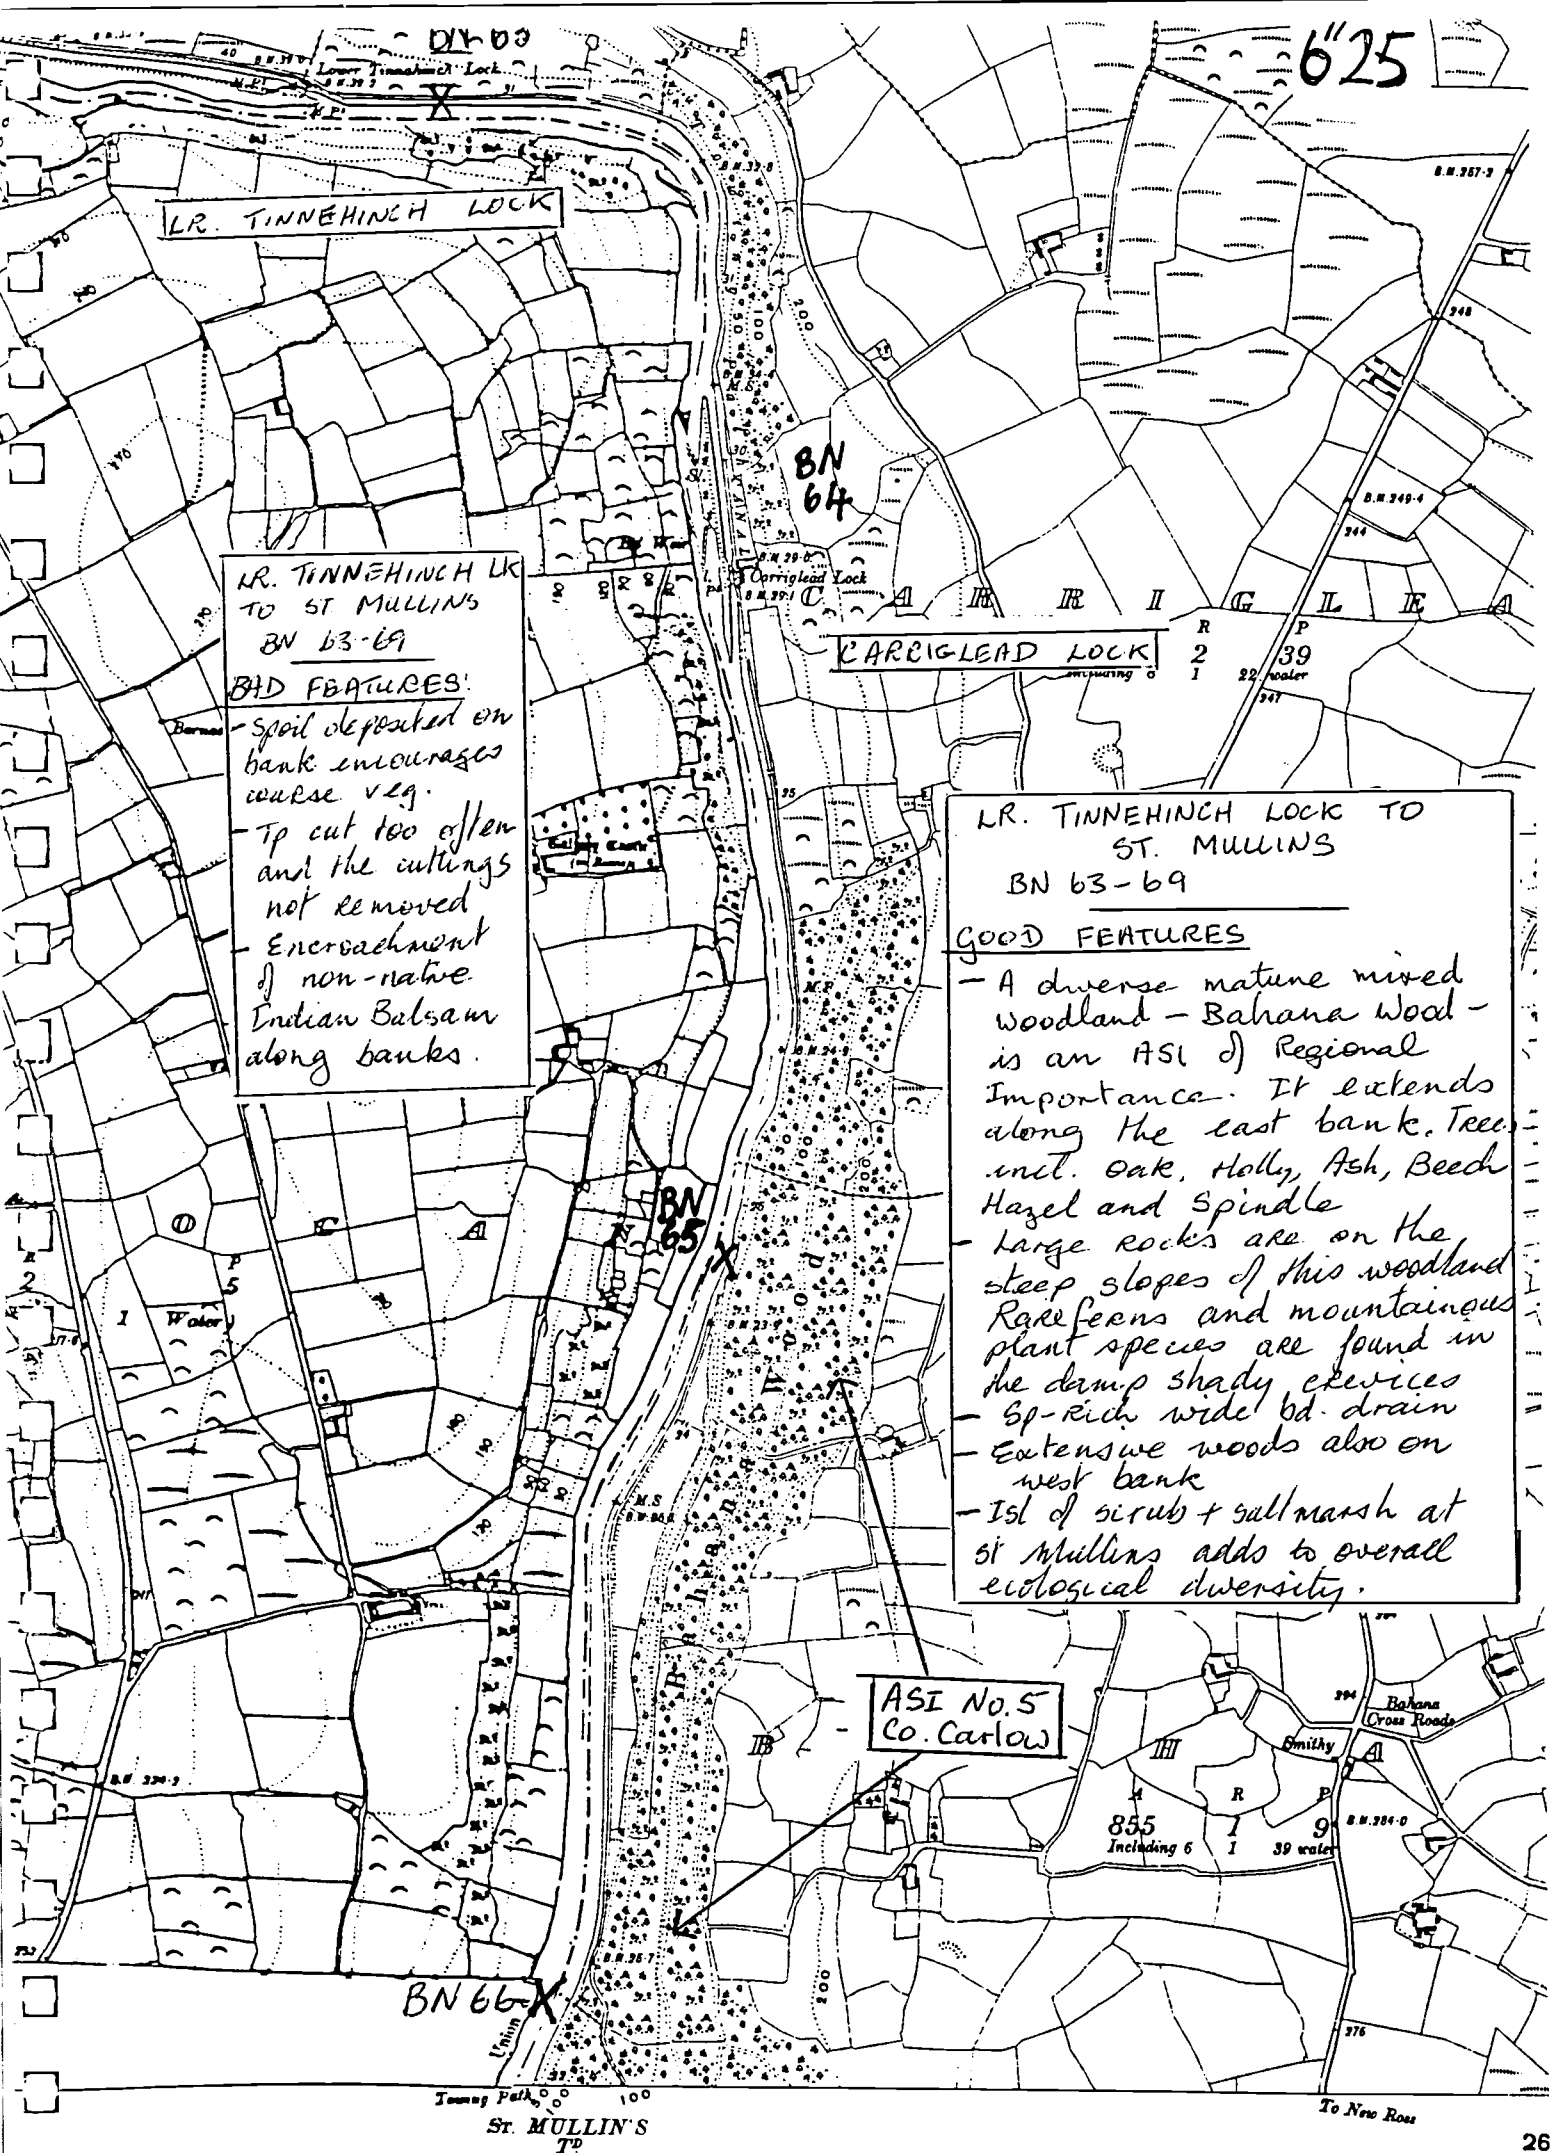 6"25
Lower Tinnahinch Lock
X
B.M.257·2
LR. TINNEHINCH LOCK
248
200
100
M.S.
BN
64
B.M.249·4
244
B.M.29·0
Carriglead Lock
B.M.29·1
C A R R I G L E A
CARRIGLEAD LOCK
R P
2 39
1 22 water
247
LR. TINNEHINCH LK
TO ST MULLINS
BN 63-69
BAD FEATURES:
- Spoil deposited on
bank encourages
coarse veg.
- Tp cut too often
and the cuttings
not removed
- Encroachment
of non-native
Indian Balsam
along banks.
LR. TINNEHINCH LOCK TO
ST. MULLINS
BN 63-69
GOOD FEATURES
- A diverse mature mixed
woodland - Bahana Wood -
is an ASI of Regional
Importance. It extends
along the east bank. Trees
incl. Oak, Holly, Ash, Beech
Hazel and Spindle
- Large rocks are on the
steep slopes of this woodland
Rare ferns and mountainous
plant species are found in
the damp shady crevices
- Sp-Rich wide bd. drain
- Extensive woods also on
west bank
- Isl of scrub + saltmarsh at
St Mullins adds to overall
ecological diversity.
M.P.
BN
65
X
O C A N
P
2 5
1 Water
Bahana Wood
M.S
ASI No.5
Co. Carlow
294
Bahana
Cross Roads
Smithy
B H A
A R P
855 1 9
Including 6 1 39 water
B.M.284·0
200
BN 66 X
Union
276
Towing Path
50
100
100
ST. MULLIN'S
TD
To New Ross
26